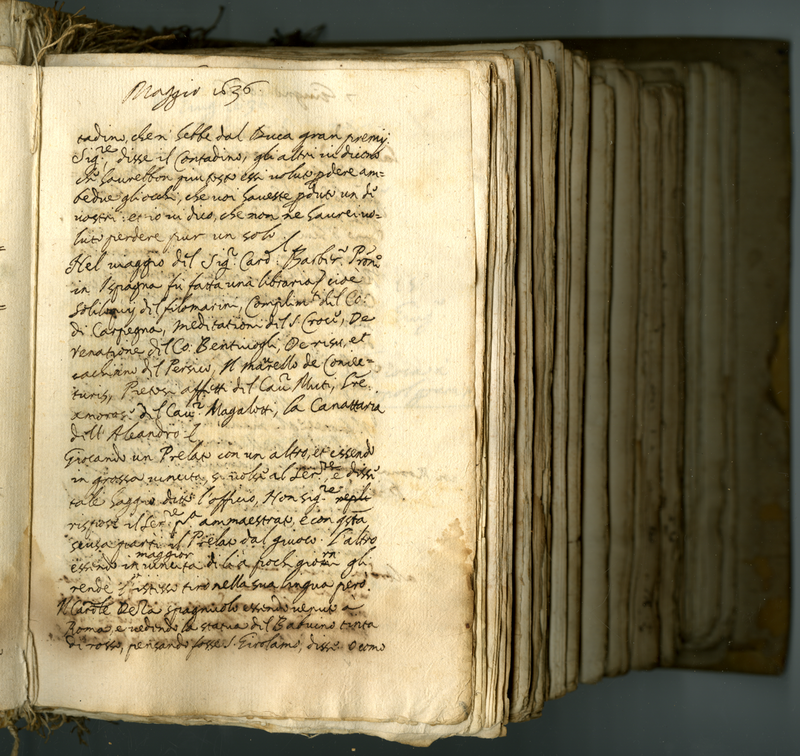 Maggio 1636
tadino, che n'hebbe dal Duca gran premij
Sig.re, disse il Contadino, gli altri vi dicono
che haurebbon piu tosto essi voluto pdere am=
bedue gli occhi, che voi haueste pduto un de
vostri: et io vi dico, che non ne haurei uo=
luto perdere pur un solo
Nel viaggio del Sig.r Card. Barber.
in Ispagna fu fatta una libraria cioè
del filomarini, Complim.ti del Co:
di Carpegna, Meditationi del S. Croce, De
venatione del Co: Bentivogli, De risu, et
del Persico, Il de Conie=
cturis, Pietosi affetti del Cau.r Muti,
amorose del Cau.r Magalotti, la Canattaria
dell'Aleandro
Giocando un Prelato con un altro, et essendo
in grossa vincita, si volse al Ser.re, e disse
tale haggio ditto l'officio, Monsig.re
rispose il Ser.re ammaestrato, e con qsta
scusa parti il Prelato dal giuoco. l'altro
essendo in maggior vincita di li a pochi giorni gli
rende l'istesso tiro nella sua lingua però.
Il Car.le spagnuolo essendo venuto a
Roma, e vedendo la statua del Babuino tinta
di rosso, pensando fosse S. Girolamo, disse o como